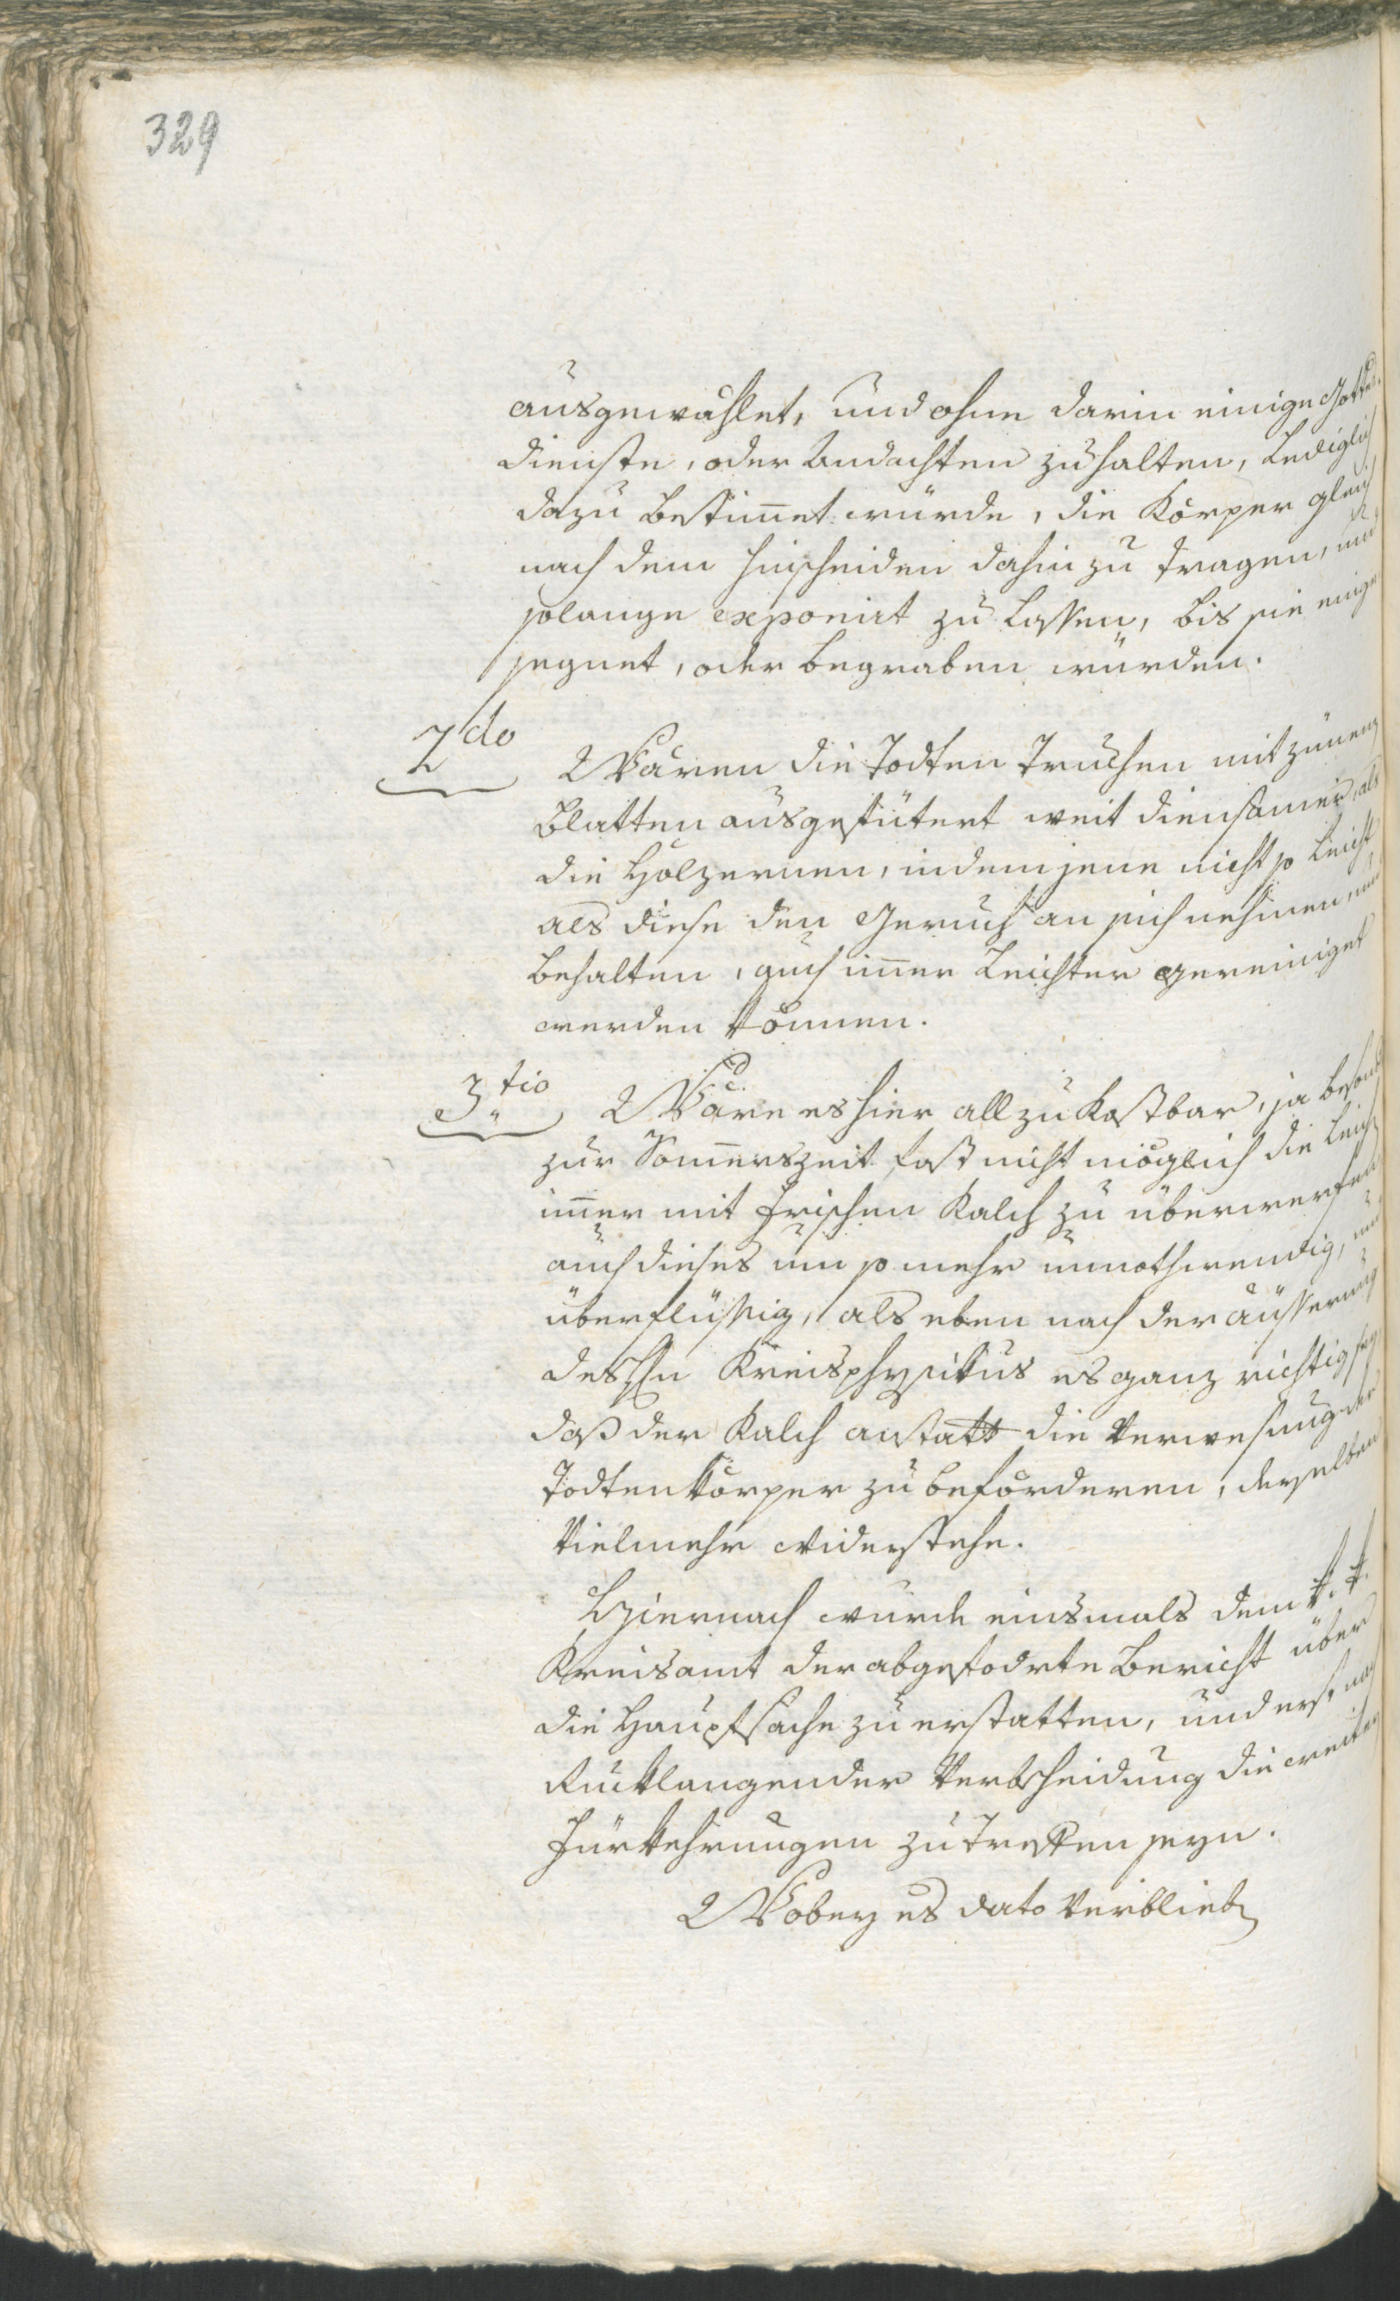 329
ausgewählet, und ohne darin einige Gottes
dienste, oder Andachten zu halten, Lediglich
dazu bestim̅et würde, die Körper gleich
nach dem hinscheiden dahin zu tragen, und
solange exponirt zu Lassen, bis sie einge
segnet, oder begraben würden.
2do Wären die Todten Truchen mit zünen
Blatten ausgefütert weit diensamer, als
die Hölzernen, indem jene nicht so Leicht
als diese den Geruch an sich nehmen, und
behalten, auch im̅er Leichter gereiniget
werden können.
3tio Wäre es hier allzu kostbar, ja besond
zur Som̅erszeit fast nicht möglich die Leich
im̅er mit frischen Kalch zu überwerfen
auch dieses um so mehr unnothwendig, und
überflüßig, als eben nach der äusserung
des Hn Kreisphysikus es ganz richtig sey
daß der Kalch anstatt die Verwesung der
Todtenkörper zu beförderen, derselben
Vielmehr widerstehe.
Hiernach wurde einsmals dem k. k.
Kreisamt der abgefodrte Bericht über
die Hauptsache zu erstatten, und erst nach
Rucklangender Verbscheidung die weitern
Fürkehrungen zu treffen seyn.
Wobey es dato Verblieb